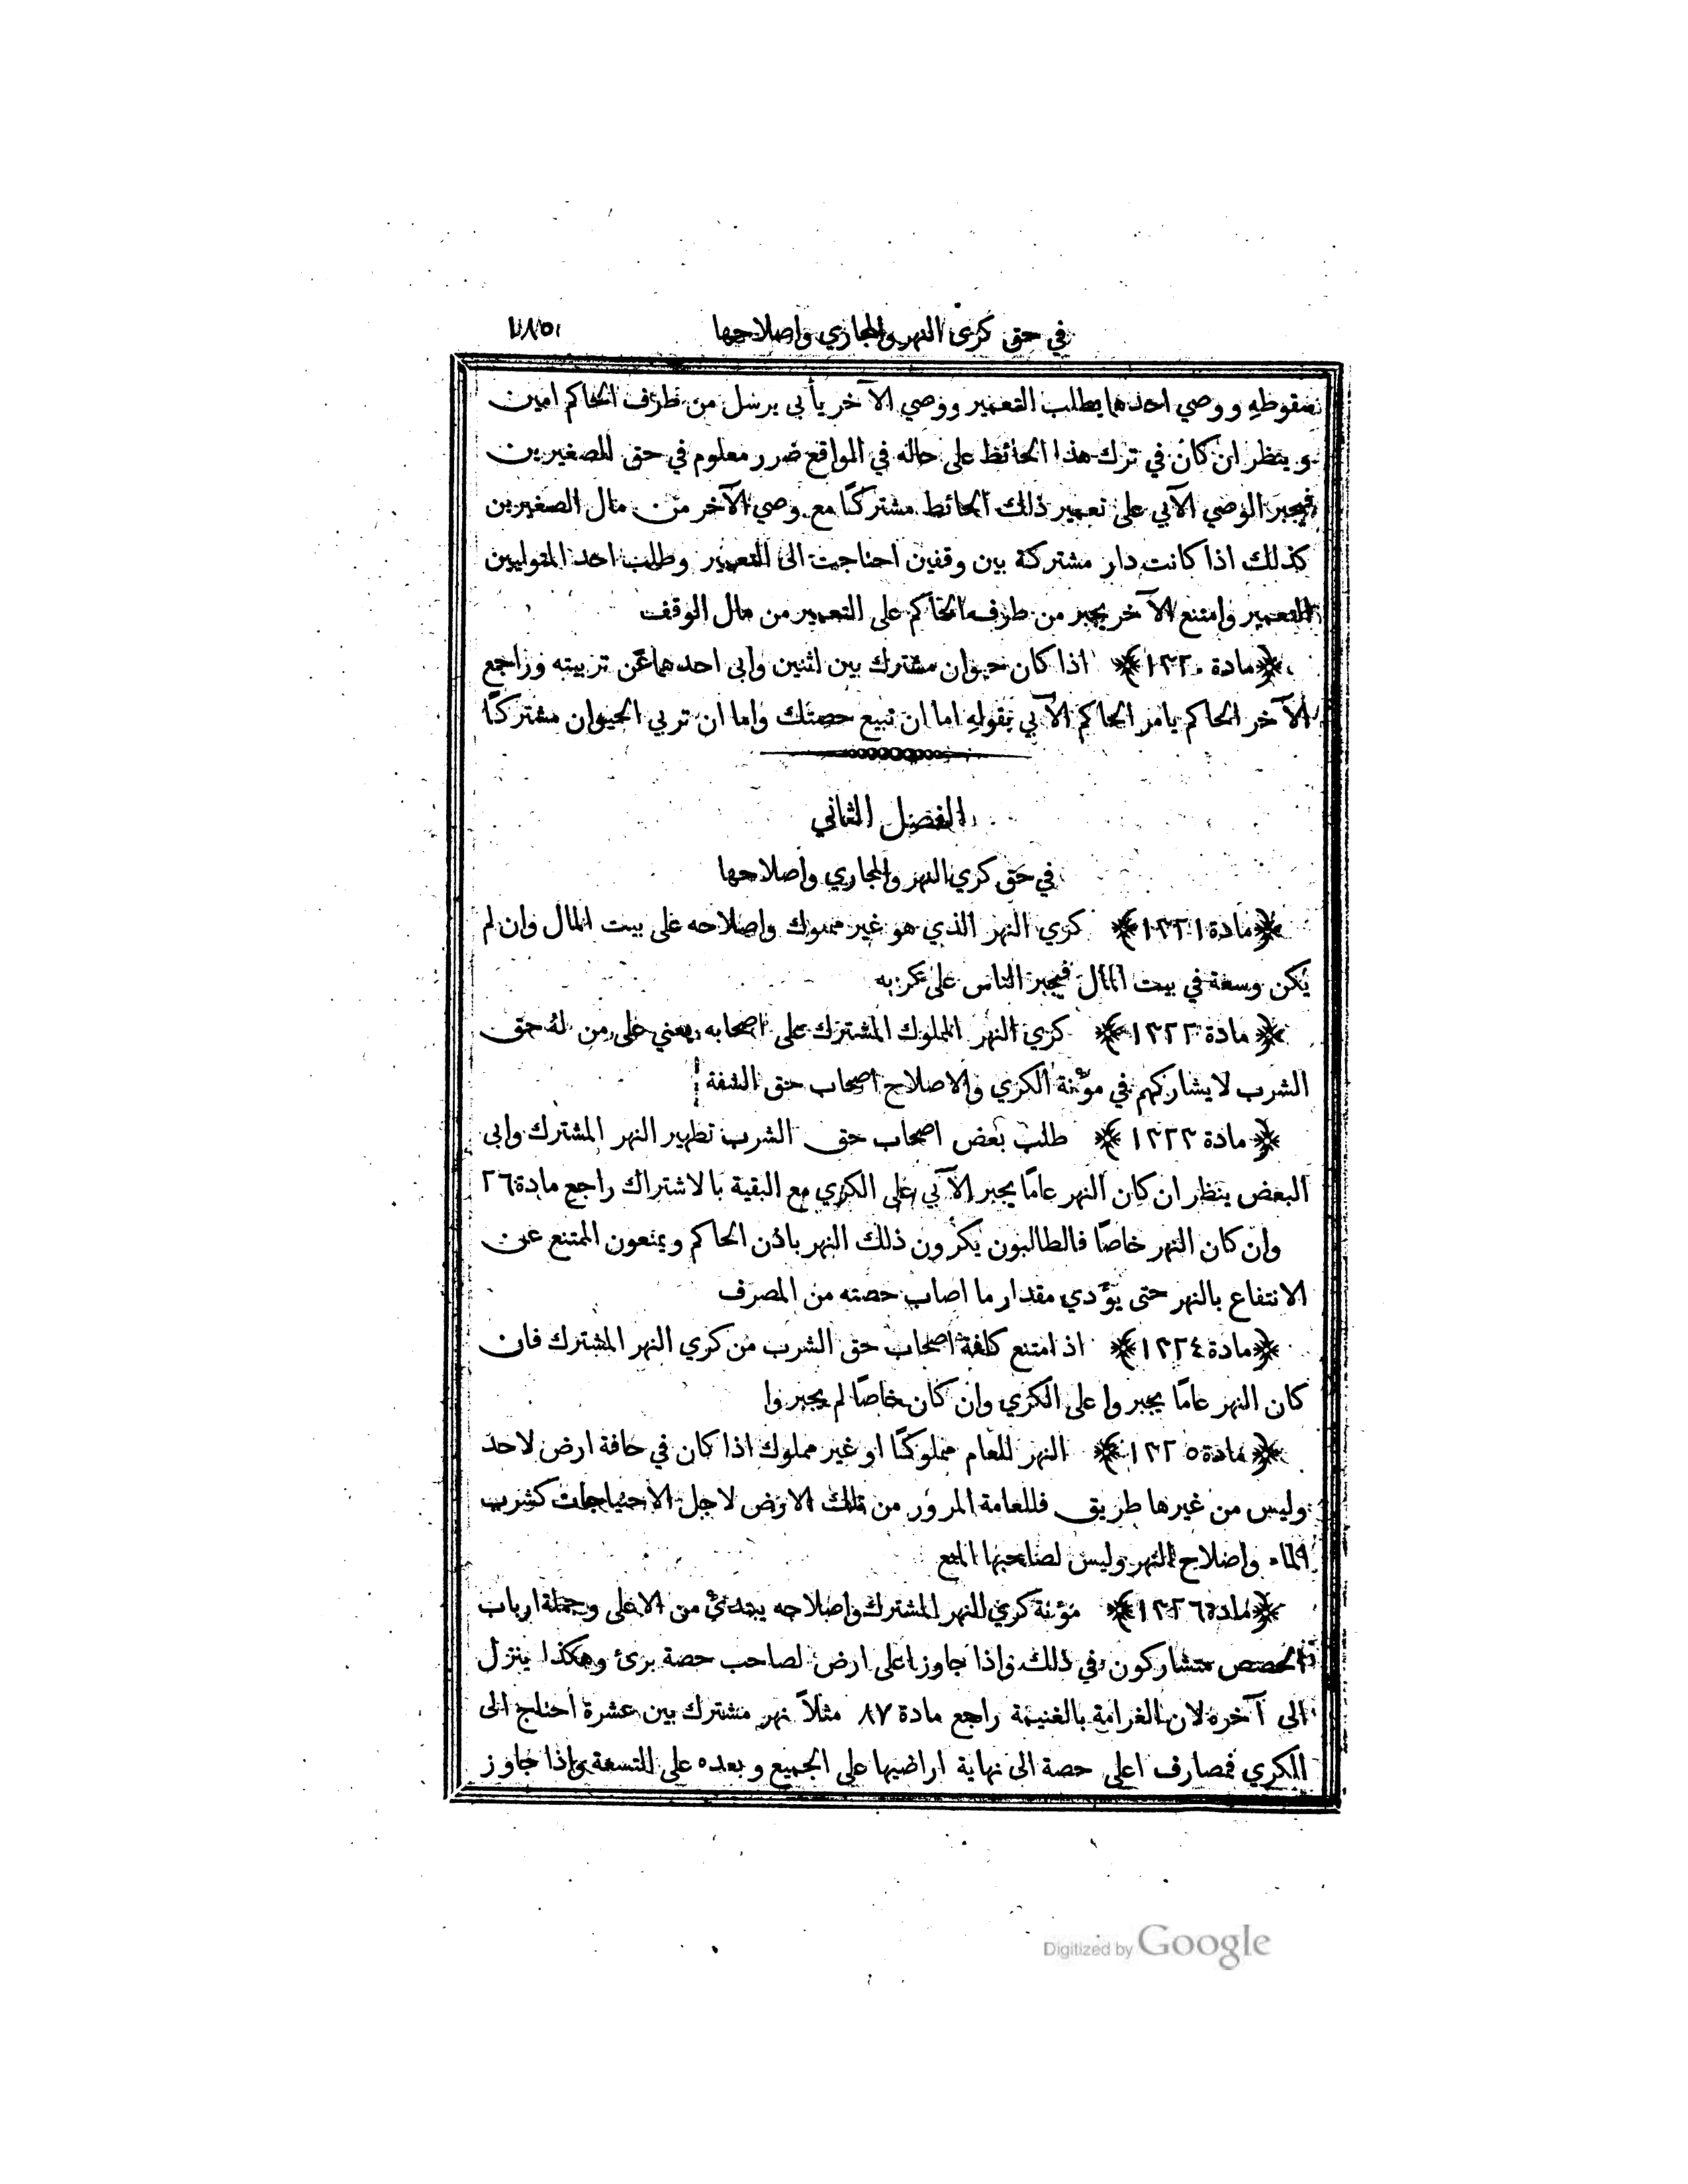 في حق كرى النهر والمجاري واصلاحها
سقوطهِ ووصي احدهما يطلب التعمير ووصي الآخر يأبى يرسل من طرف الحاكم امين
وينظر ان كان في ترك هذا الحائط على حاله في الواقع ضرر معلوم في حق الصغيرين
فيجبر الوصي الآبي على تعمير ذلك الحائط مشتركًا مع وصي الآخر من مال الصغيرين
كذلك اذا كانت دار مشتركة بين وقفين احتاجت الى التعمير وطلب احد المتوليين
التعمير وامتنع الآخر يجبر من طرف الحاكم على التعمير من مال الوقف
﴿مادة ١٣٢٠﴾ اذا كان حيوان مشترك بين اثنين وابى احدهما عن تربيته وراجع
الآخر الحاكم يامر الحاكم الآبي بقولهِ اما ان تبيع حصتك واما ان تربي الحيوان مشتركًا
الفصل الثاني
في حق كري النهر والمجاري واصلاحها
﴿مادة ١٣٢١﴾ كري النهر الذي هو غير مملوك واصلاحه على بيت المال وان لم
يكن وسعة في بيت المال فيجبر الناس على كريه
﴿مادة ١٣٢٢﴾ كري النهر المملوك المشترك على اصحابه يعني على من لهُ حق
الشرب لا يشاركهم في مؤنة الكري والاصلاح اصحاب حق الشفة
﴿مادة ١٣٢٣﴾ طلب بعض اصحاب حق الشرب تطهير النهر المشترك وابى
البعض ينظر ان كان النهر عامًا يجبر الآبي على الكري مع البقية بالاشتراك راجع مادة ٢٦
وان كان النهر خاصًا فالطالبون يكرون ذلك النهر باذن الحاكم ويمنعون الممتنع عن
الانتفاع بالنهر حتى يؤدي مقدار ما اصاب حصته من المصرف
﴿مادة ١٣٢٤﴾ اذ امتنع كافة اصحاب حق الشرب من كري النهر المشترك فان
كان النهر عامًا يجبروا على الكري وان كان خاصًا لم يجبروا
﴿مادة ١٣٢٥﴾ النهر للعام مملوكًا او غير مملوك اذا كان في حافة ارض لاحد
وليس من غيرها طريق فللعامة المرور من تلك الارض لاجل الاحتياجات كشرب
الماء واصلاح النهر وليس لصاحبها المنع
﴿مادة ١٣٢٦﴾ مؤنة كري النهر المشترك واصلاحه يبتدئ من الاعلى وجملة ارباب
الحصص متشاركون في ذلك واذا جاوز اعلى ارض لصاحب حصة برئ وهكذا ينزل
الى آخره لان الغرامة بالغنيمة راجع مادة ٨٧ مثلاً نهر مشترك بين عشرة احتاج الى
الكري فمصارف اعلى حصة الى نهاية اراضيها على الجميع وبعده على التسعة واذا جاوز
Digitized by Google